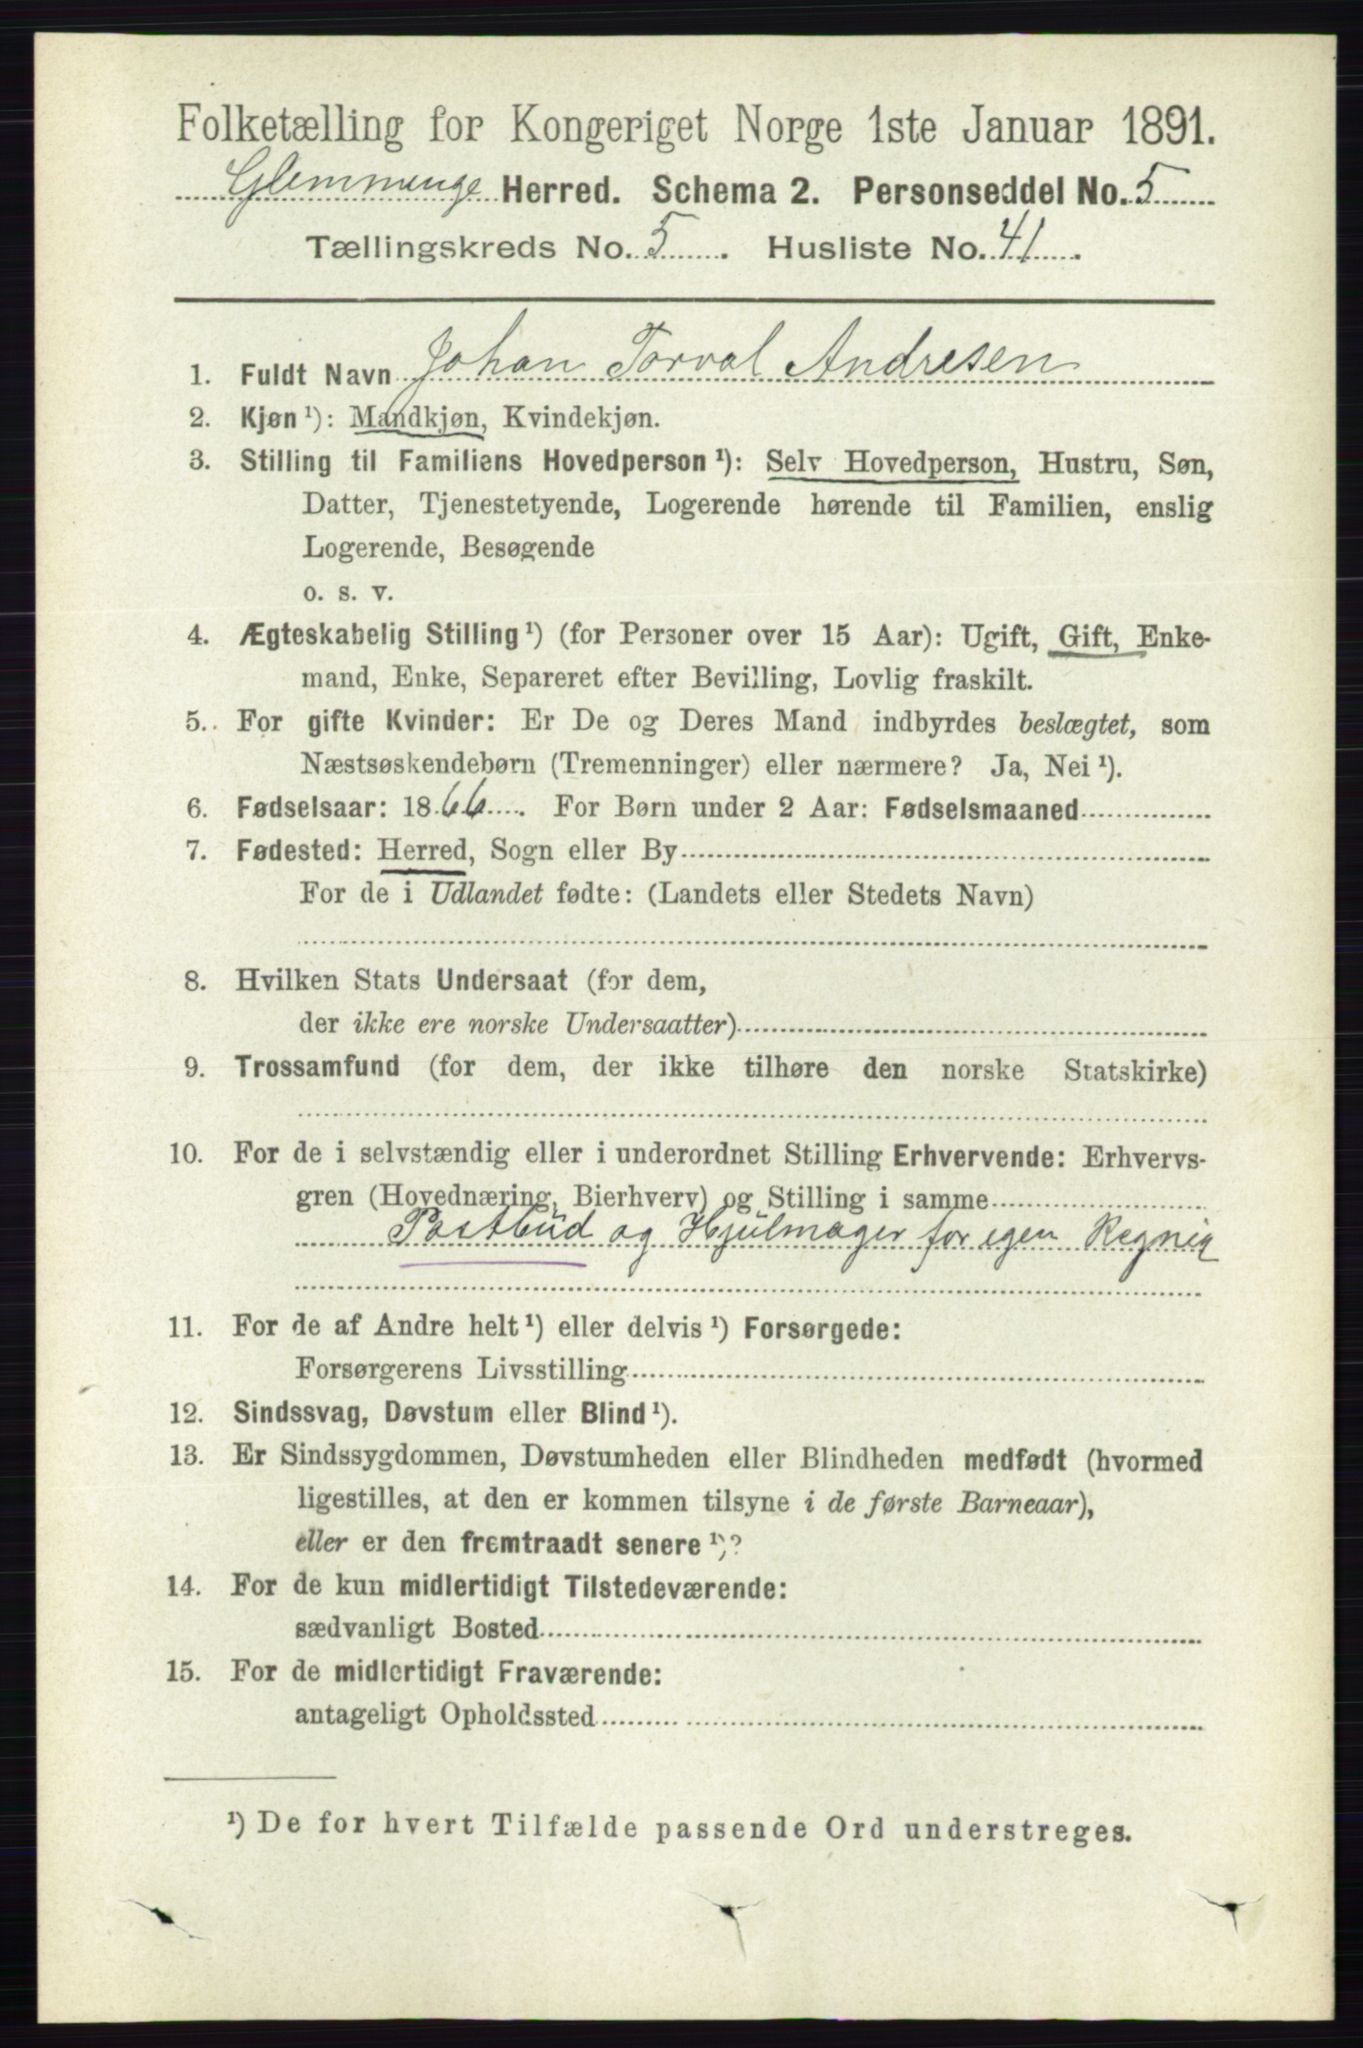 Folketælling for Kongeriget Norge 1ste Januar 1891.
Glemminge Herred. Schema 2. Personseddel No. 5
Tællingskreds No. 5. Husliste No. 41.
1. Fuldt Navn Johan Torval Andresen
2. Kjøn ¹): Mandkjøn, Kvindekjøn.
3. Stilling til Familiens Hovedperson ¹): Selv Hovedperson, Hustru, Søn,
Datter, Tjenestetyende, Logerende hørende til Familien, enslig
Logerende, Besøgende
o. s. v.
4. Ægteskabelig Stilling ¹) (for Personer over 15 Aar): Ugift, Gift, Enke-
mand, Enke, Separeret efter Bevilling, Lovlig fraskilt.
5. For gifte Kvinder: Er De og Deres Mand indbyrdes beslægtet, som
Næstsøskendebørn (Tremenninger) eller nærmere? Ja, Nei ¹).
6. Fødselsaar: 1866. For Børn under 2 Aar: Fødselsmaaned
7. Fødested: Herred, Sogn eller By
For de i Udlandet fødte: (Landets eller Stedets Navn)
8. Hvilken Stats Undersaat (for dem,
der ikke ere norske Undersaatter)
9. Trossamfund (for dem, der ikke tilhøre den norske Statskirke)
10. For de i selvstændig eller i underordnet Stilling Erhvervende: Erhvervs-
gren (Hovednæring, Bierhverv) og Stilling i samme
Postbud og Hjulmager for egen Regnig
11. For de af Andre helt ¹) eller delvis ¹) Forsørgede:
Forsørgerens Livsstilling
12. Sindssvag, Døvstum eller Blind ¹).
13. Er Sindssygdommen, Døvstumheden eller Blindheden medfødt (hvormed
ligestilles, at den er kommen tilsyne i de første Barneaar),
eller er den fremtraadt senere ¹)?
14. For de kun midlertidigt Tilstedeværende:
sædvanligt Bosted
15. For de midlertidigt Fraværende:
antageligt Opholdssted
¹) De for hvert Tilfælde passende Ord understreges.